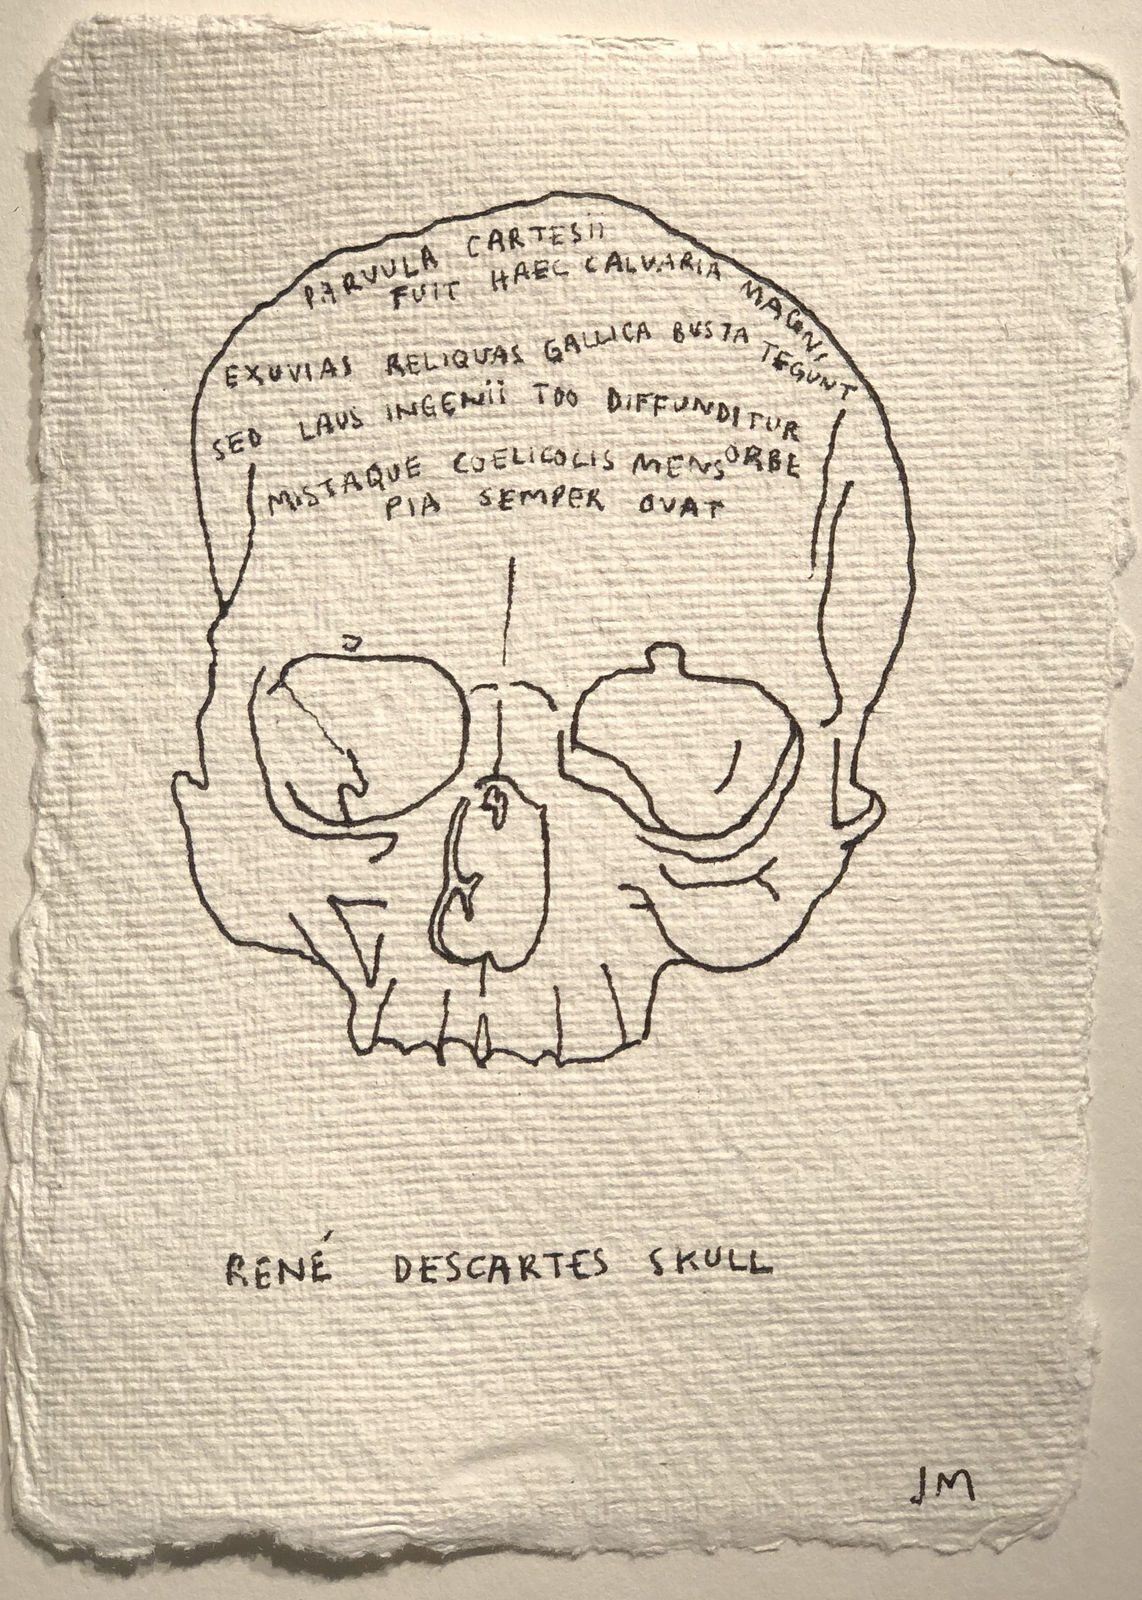 PARVULA CARTESII
FUIT HAEC CALVARIA MAGNI
EXUVIAS RELIQUAS GALLICA BUSTA TEGUNT
SED LAUS INGENII TOO DIFFUNDITUR
ORBE
MISTAQUE COELICOLIS MENS
PIA SEMPER OVAT
RENÉ DESCARTES SKULL
JM